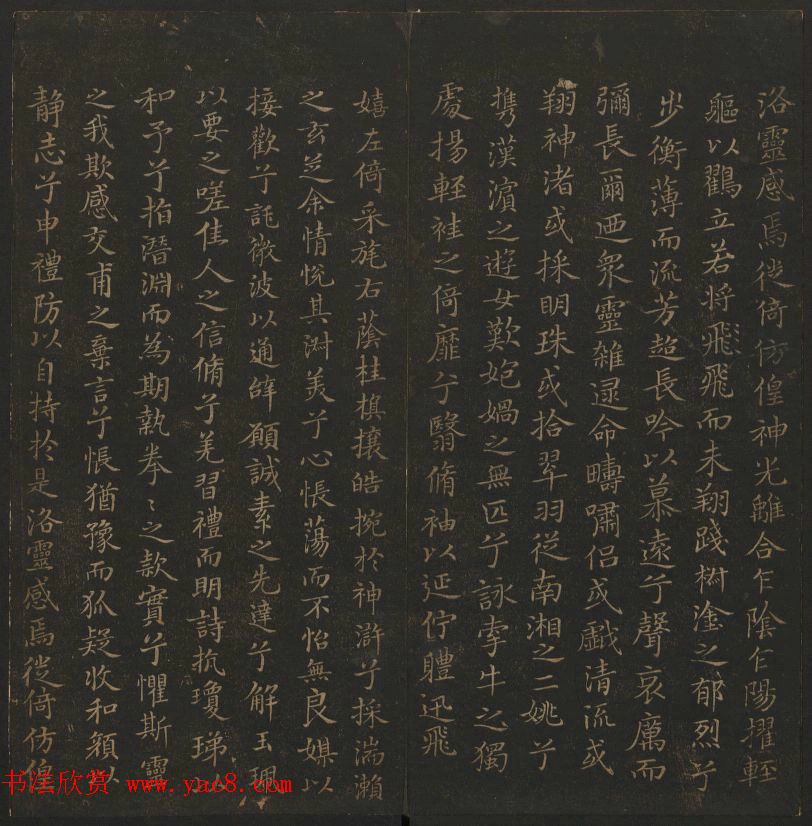 洛靈感焉徙倚仿偟神光離合乍陰乍陽擢輕
軀以鶴立若將飛飛而未翔踐椒塗之郁烈兮
步衡薄而流芳超長吟以慕遠兮聲哀厲而
彌長爾迺眾靈雜遝命疇嘯侶或戲清流或
翔神渚或採明珠或拾翠羽從南湘之二姚兮
攜漢濱之遊女歎媧之無匹兮詠牽牛之獨
處揚輕袿之倚靡兮翳脩袖以延佇體迅飛
嬉左倚采旄右蔭桂旗攘皓捥於神滸兮採湍瀨
之玄芝余情悅其淑美兮心悵蕩而不怡無良媒以
接歡兮託微波以通辭願誠素之先達兮解玉珮
以要之嗟佳人之信脩兮羌習禮而明詩抗瓊珶以
和予兮指潛淵而為期執拳〻之款實兮懼斯靈
之我欺感交甫之棄言兮悵猶豫而狐疑收和顏以
靜志兮申禮防以自持於是洛靈感焉徙倚仿偟
书法欣赏 www.yac8.com